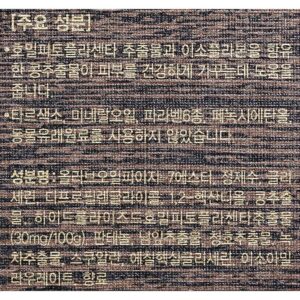 [주요 성분]
•호밀피토플라센타 추출물과 이소플라본을 함유
한 콩추출물이 피부를 건강하게 가꾸는데 도움을
줍니다.
•타르색소, 미네랄오일, 파라벤6종, 페녹시에탄올,
동물유래원료를 사용하지 않았습니다.
성분명: 올리브오일피이지-7에스터, 정제수, 글리
세린, 디프로필렌글라이콜, 1,2-헥산다이올, 콩추출
물, 하이드롤라이즈드호밀피토플라센타추출물
(30mg/100g), 판테놀, 추출물, 추출물, 녹
차추출물, 스쿠알란, 에칠헥실글리세린, 이소아밀
라우레이트, 향료